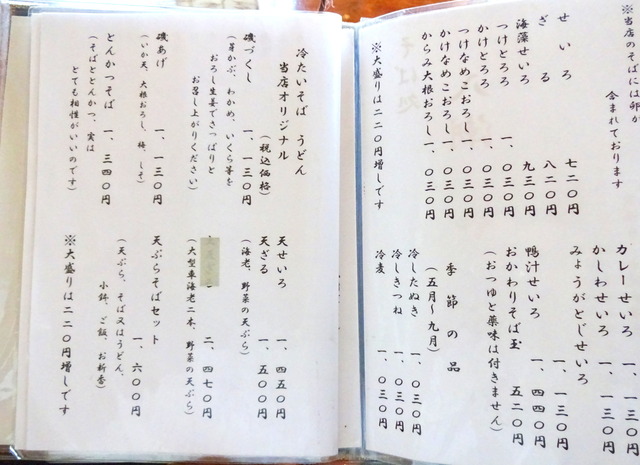 ※当店のそばには卵が
含まれております
せいろ 七二〇円
ざる 八二〇円
海藻せいろ 九三〇円
つけとろろ 一、〇三〇円
かけとろろ 一、〇三〇円
つけなめこおろし 一、〇三〇円
かけなめこおろし 一、〇三〇円
からみ大根おろし 一、〇三〇円
※大盛りは二二〇円増しです
カレーせいろ 一、一三〇円
かしわせいろ 一、一三〇円
みょうがとじせいろ 一、一三〇円
鴨汁せいろ 一、四四〇円
おかわりそば玉 五二〇円
(おつゆと薬味は付きません)
季節の品
(五月～九月)
冷したぬき 一、〇三〇円
冷しきつね 一、〇三〇円
冷麦 一、〇三〇円
冷たいそば うどん
当店オリジナル
(税込価格)
磯づくし 一、一三〇円
(芽かぶ、わかめ、いくら等を
おろし生姜でさっぱりと
お召し上がりください)
磯あげ 一、一三〇円
(いか天、大根おろし、梅、しそ)
とんかつそば 一、三四〇円
(そばととんかつ、実は
とても相性がいいのです)
天せいろ 一、四五〇円
天ざる 一、五〇〇円
(海老、野菜の天ぷら)
二、四七〇円
(大型車海老二本、野菜の天ぷら)
天ぷらそばセット 一、六〇〇円
(天ぷら、そば又はうどん、
小鉢、ご飯、お新香)
※大盛りは二二〇円増しです